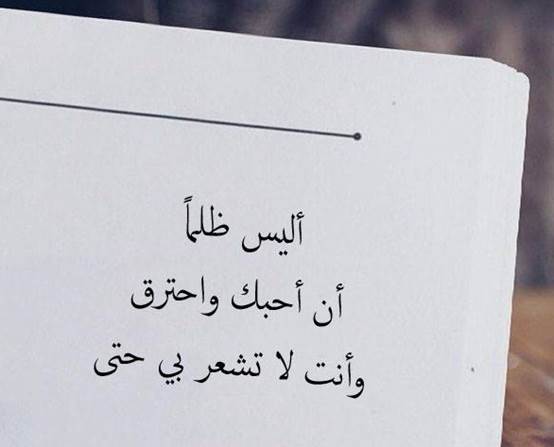 أليس ظلماً
أن أحبك واحترق
وأنت لا تشعر بي حتى